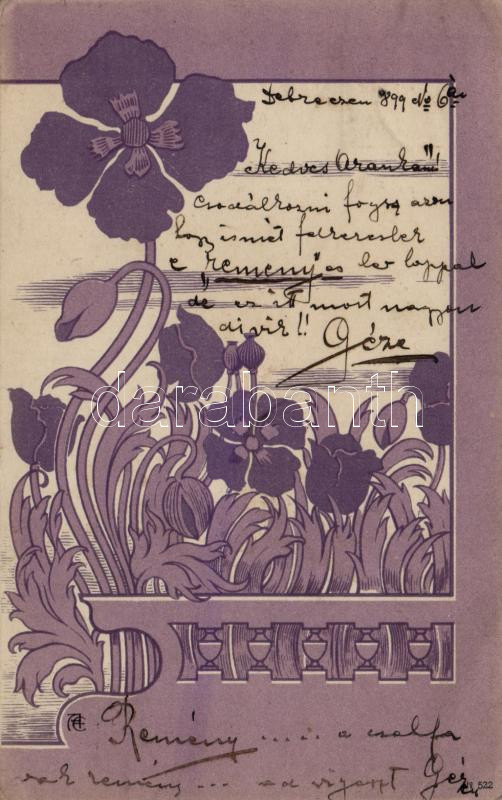 Debreczen 899 No 6án
Kedves Arankám!!
Csodálkozni fogsz azon
hogy ismét felkereslek
e "remény"es lev lappal
de ez itt most nagyon
divik!! Géza
darabanth
Remény ..... a csalfa
vak remény ... ad vigaszt Géza
No 522